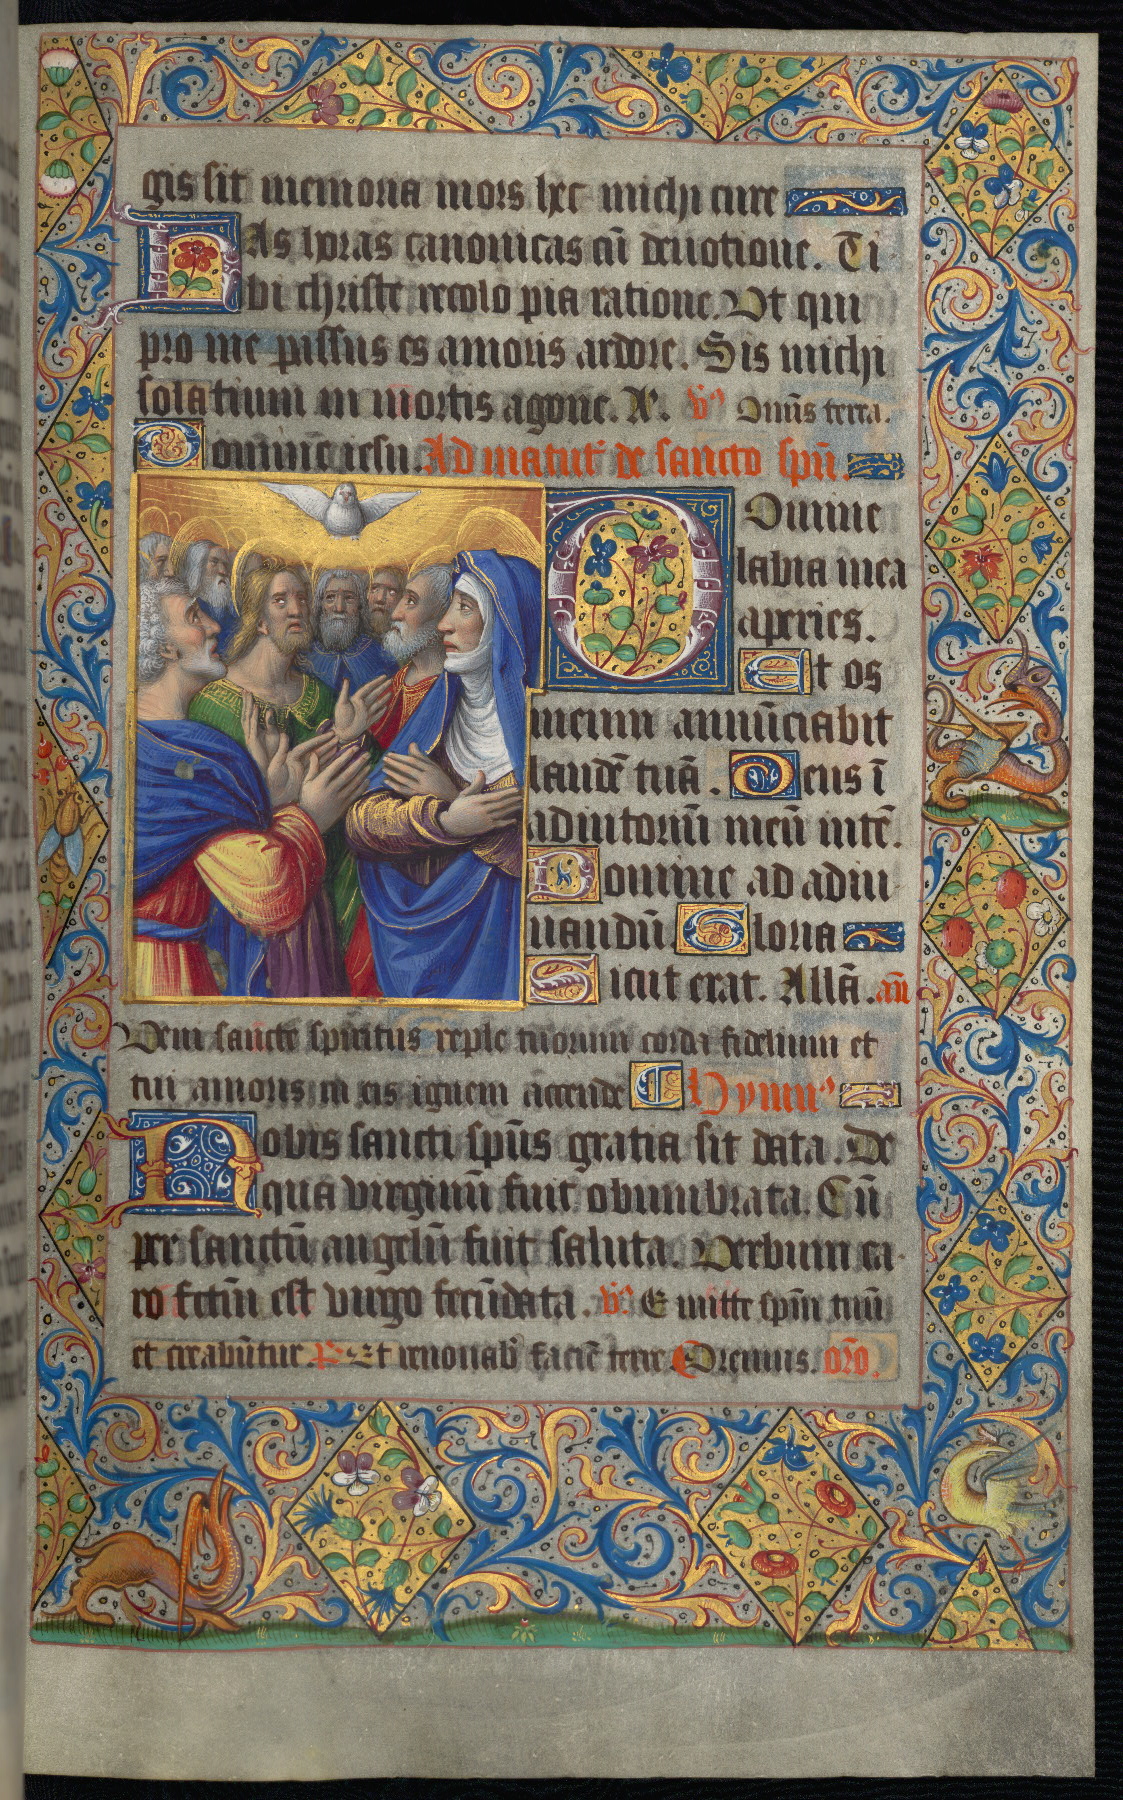 gis sit memoria mors hec michi cure
Has horas canonicas cū deuotione. Ti
bi christe recolo pia ratione. Vt qui
pro me passus es amoris ardore. Sis michi
solatium in mortis agone. ℟. v᷎ Omīs terra.
Domine iesu. Ad matut᷎ de sancto spū.
Domine
labia mea
aperies.
Et os
meum annūciabit
laudē tuā. Deus ī
adiutoriū meū intē.
Domine ad adiu
uandū Gloria
Sicut erat. Allā. añ
Veni sancte spiritus reple tuorum corda fidelium et
tui amoris in eis ignem accende Hymn᷒
Nobis sancti spūs gratia sit data. De
qua virginū fuit obumbrata. Cū
per sanctū angelū fuit saluta. Verbum ca
ro fctm̄ est virgo fecūdata. v᷎ Emitte spm̄ tuū
et creabūtur R Et renouab᷎ faciē terre. Oremus. oro.